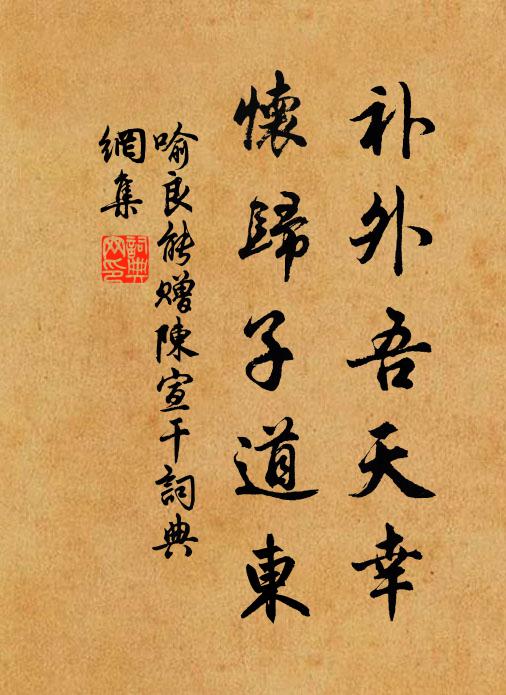 补外吾天幸
懷歸子道東
喻良能贈陳宣干詞典
網集
詞典
网印